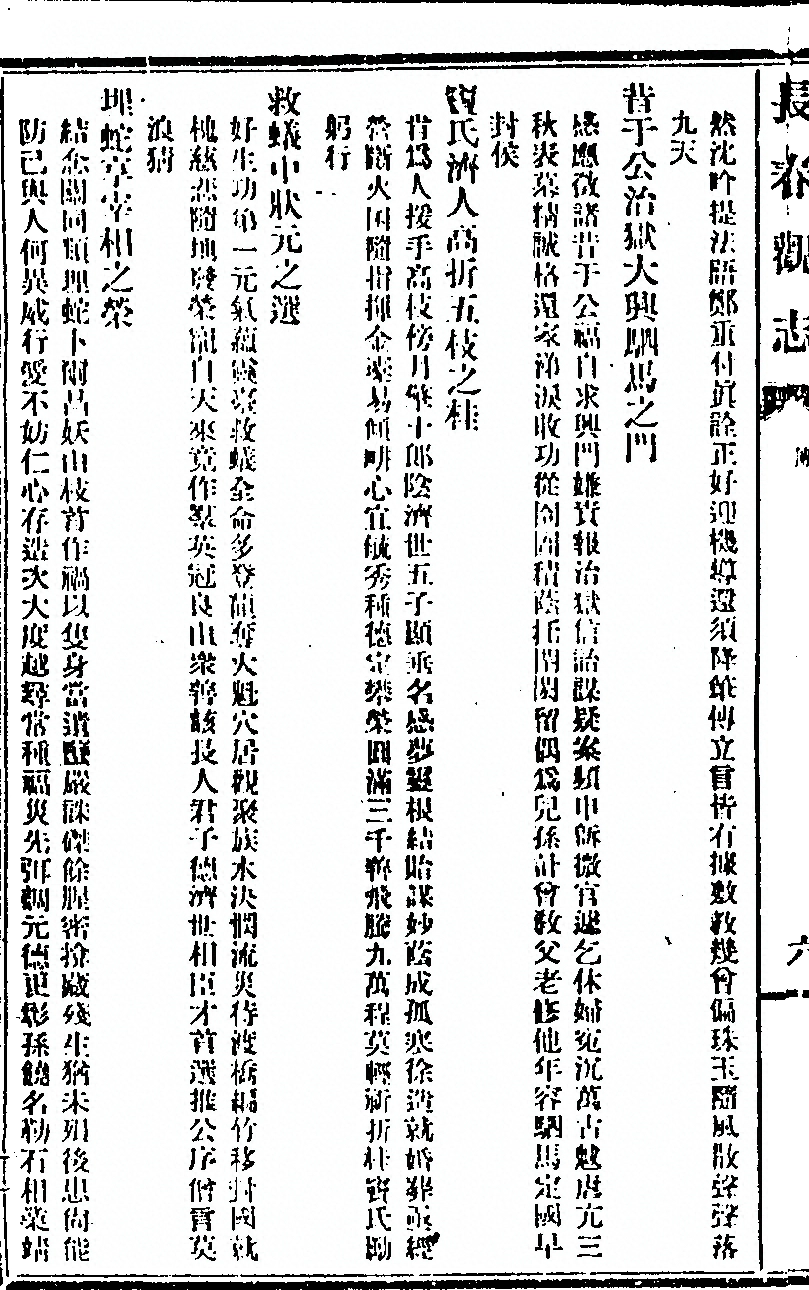 長春觀志
六
然沈吟提法語鄭重付眞詮正好迎機導還須降筵傳立言皆有據數教幾曾偏珠玉隨風散聲聲落
九天
昔于公治獄大興駟馬之門
感應徵諸昔于公福自求興門雖責報治獄信詒謀疑案頻申訴微官遽乞休婦寃沉萬古魃虐亢三
秋表墓精誠格還家涕淚收功從囹圄積蔭托閈閎留偶爲兒孫計曾敎父老修他年容駟馬定國早
封侯
竇氏濟人高折五枝之桂
肯爲人援手高枝傍月擎十郎陰濟世五子顯垂名感夢靈根結貽謀妙蔭成孤寒徐造就婚葬亟經
營斷火囷隨指揮金橐易傾耕心宜毓秀種德定攀榮圓滿三千粹飛騰九萬程莫輕新折桂竇氏勖
躬行
救蟻中狀元之選
好生功第一元氣蘊靈臺救蟻全命多登龍奪大魁穴居觀聚族水決憫流災待渡橋編竹移封國就
槐慈悲隨地發榮寵自天來竟作羣英冠良由衆善該長人君子德濟世相臣才首選推公序僧言莫
浪猜
埋蛇享宰相之榮
結念關同類埋蛇卜爾昌妖由枝首作禍以隻身當遺孽嚴誅磔餘腥密揜藏殘生猶未殞後患尙能
防己與人何異威行愛不妨仁心存造次大度越尋常種福災先弭調元德更彰孫饒名勒石相業靖